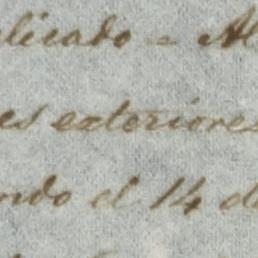 plicado = Al
es exteriores
ndo el 14 d